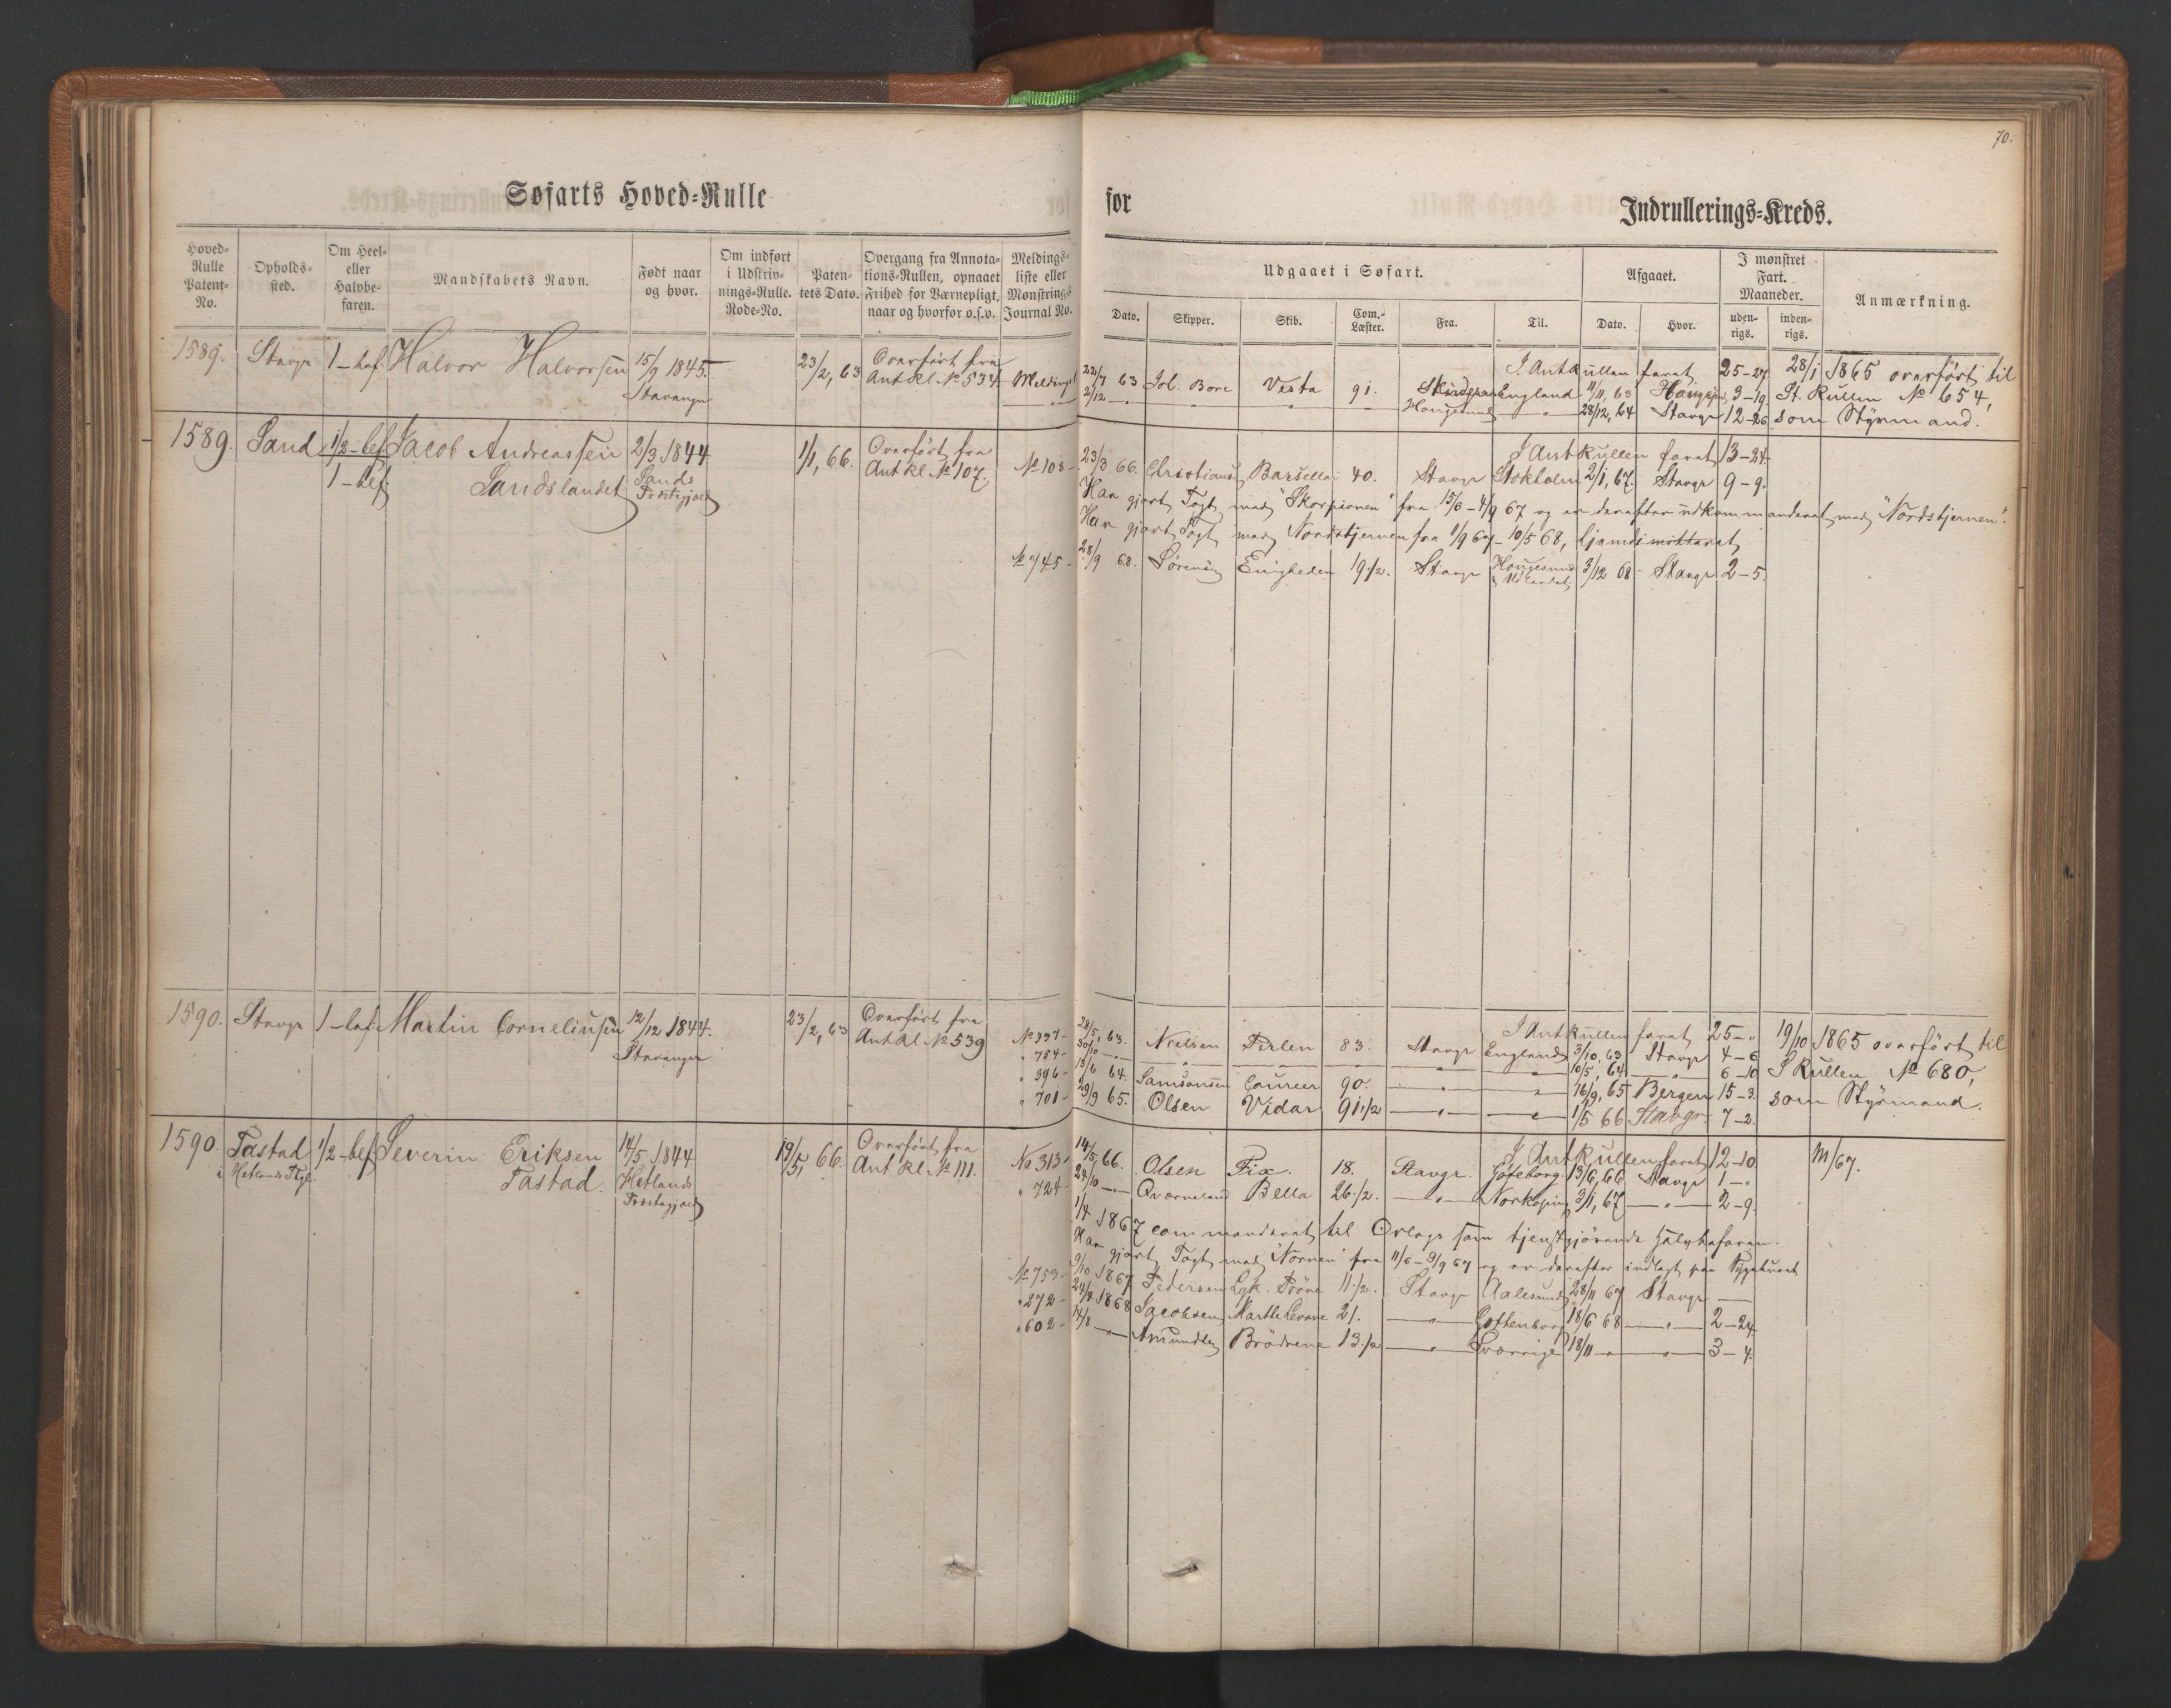 70.
Søfarts Hoved-Rulle
for
Indrullerings-Kreds.
Hoved-Rulle Patent-No.
Opholds-sted.
Om Heel- eller Halvbe-faren.
Mandskabets Navn.
Født naar og hvor.
Om indført i Udskriv-nings-Rulle. Rode-No.
Paten-tets Dato.
Overgang fra Annota-tions-Rullen, opnaaet Frihed for Værnepligt, naar og hvorfor o.s.v.
Meldings-liste eller Mønstrings Journal No.
Udgaaet i Søfart.
Afgaaet.
I mønstret Fart. Maaneder.
Anmærkning.
Dato.
Skipper.
Skib.
Com.-Læster.
Fra.
Til.
Dato.
Hvor.
uden-rigs.
inden-rigs.
1589. Stavgr 1-bef. Halvor Halvorsen 15/9 1845. 23/2, 63 Overført fra
Stavanger Antkl. No 534.
I Antkullen faret 25-27 28/1 1865 overført til
63 Joh. Bore Vesta 91. England 11/11, 63 3-19 St. Rullen No 654,
2/12 Hougesund 28/12, 64 Stavgr 12-26 som Styrmand.
1589. Sand 1/2-bef. Jacob Andreassen 2/3 1844 1/1, 66. Overført fra
1-bef. Sandslandet Sands Præstegjæld Antkl. No 107. No 108-
I Antkullen faret 13-24.
23/3 66. Barsella 40. Stavgr Stokholm 2/1, 67. Stavgr 9-9.
Har gjort Togt med "Skorpionen" fra 15/6-4/9 67 og er derefter udkommanderet med "Nordstjernen".
Har gjort Togt med Nordstjernen fra 11/9 67-10/5 68, hjemdimitteret
28/9 68. Enigheden 19 1/2. Stavgr Hougesund 3/12 68 Stavgr 2-5.
1590. Stavgr 1-bef. Martin Corneliusen 12/12 1844. 23/2, 63 Overført fra
Stavanger Antkl. No 539
I Antkullen faret 25-" 19/10 1865 overført til
No 337- 28/5, 63. Nielsen Perlen 83. Stavgr England 3/10, 63 Stavgr 4-6 S Rullen No 680,
" 754- 30/10 10/5, 64 6-10
" 396- 13/6 64. Samsonsen Coureer 90. 16/9, 65 Bergen 15-3. som Styrmand.
" 701- 29/9 65. Olsen Vidar 91 1/2 1/5 66 Stavgr 7-2.
1590. Tastad 1/2-bef. Severin Eriksen 14/5 1844 19/5, 66. Overført fra
i Hetlands Tastad. Hetlands Præstegjæld Antkl. No 111.
I Antkullen faret 12-10 M/67.
No 313- 14/5, 66. Olsen Fix. 18. Stavgr. Gøteborg 13/6, 66 Stavgr 1-"
" 724- 24/10 Qvarneland Bella 26 1/2. Norkøping 3/1, 67 2-9.
1/4 1867 commanderet til Orlogs som tjenstgjørende Halvbefaren.
Har gjort Togt med "Nornen" fra 11/6-3/9 67 og er derefter indlagt paa Sygehuset
No 753- 9/10 1867 Pedersen Lyk. Prøve 11 1/2. Stavgr Aalesund 28/11 67 Stavgr
" 272- 1868 Jacobsen 21. Gøttenborg 18/6 68 2-24
" 602- Amundsen Brødrene 13 1/2 Sverrige 18/11 3-4.